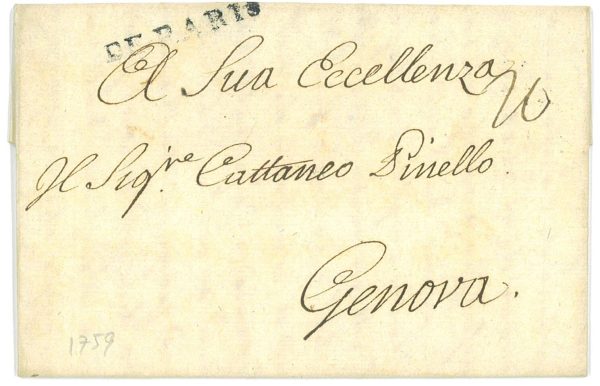 DE PARIS
A Sua Eccellenza
Il Sigr.re Cattaneo Pinello.
Genova.
1759